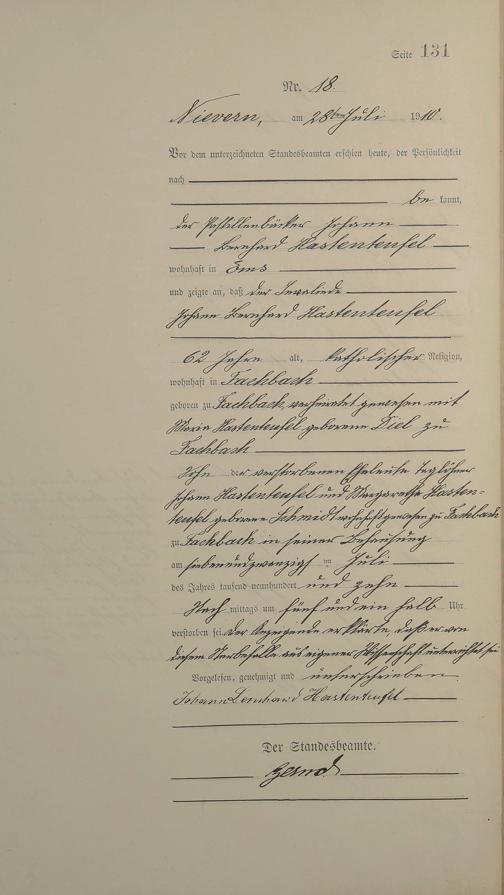 Seite 131
Nr. 18.
Nievern, am 28ten Juli 1910.
Vor dem unterzeichneten Standesbeamten erschien heute, der Persönlichkeit
nach
be kannt,
der Pastillenbäcker Johann
Bernhard Hastenteufel
wohnhaft in Ems
und zeigte an, daß der Invalide
Johann Bernhard Hastenteufel
62 Jahre alt, katholischer Religion,
wohnhaft in Fachbach
geboren zu Fachbach, verheiratet gewesen mit
Maria Hastenteufel geborene Diel zu
Fachbach
Sohn der verstorbenen Eheleute Taglöhner
Johann Hastenteufel und Margarethe Hasten-
teufel geborene Schmidt wohnhaft gewesen zu Fachbach
zu Fachbach in seiner Behausung
am siebenundzwanzigst en Juli
des Jahres tausend neunhundert und zehn
Nach mittags um fünf und ein halb Uhr
verstorben sei. Der Anzeigende erklärte, daß er von
diesem Sterbefalle aus eigener Wissenschaft unterrichtet sei
Vorgelesen, genehmigt und unterschrieben
Johann Bernhard Hastenteufel
Der Standesbeamte.